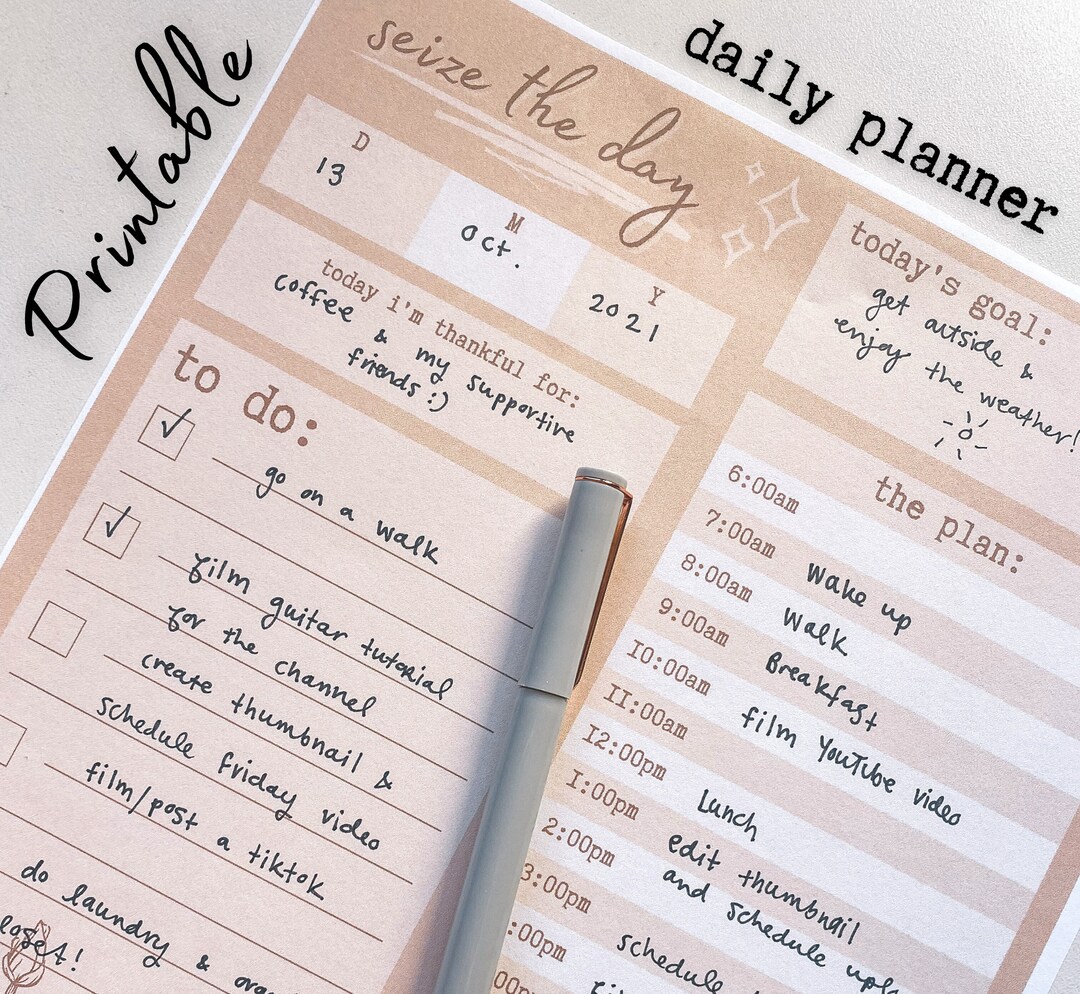 Printable
daily planner
seize the day
D
13
M
Oct.
Y
2021
today i'm thankful for:
coffee & my supportive
friends :)
today's goal:
get outside &
enjoy the weather!
to do:
go on a walk
film guitar tutorial
for the channel
create thumbnail &
schedule friday video
film/post a tiktok
do laundry &
the plan:
6:00am
7:00am wake up
8:00am walk
9:00am Breakfast
10:00am film YouTube video
11:00am
12:00pm Lunch
1:00pm edit thumbnail
2:00pm and schedule
3:00pm
:00pm schedule